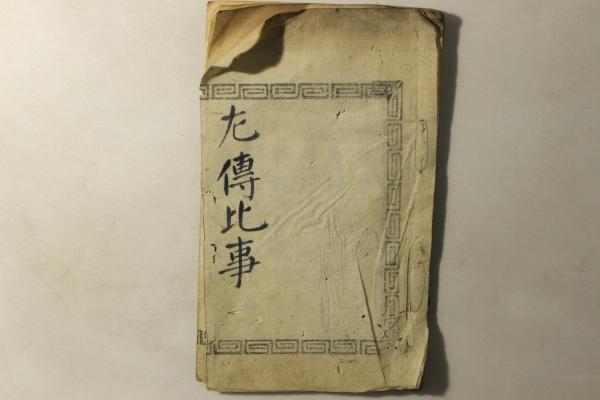 左傳比事